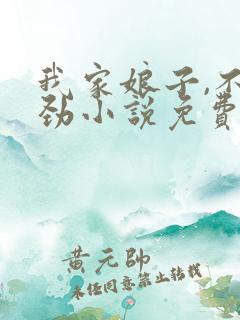 我家娘子,不
劲小说免費
黄元帥
未经同意禁止转载